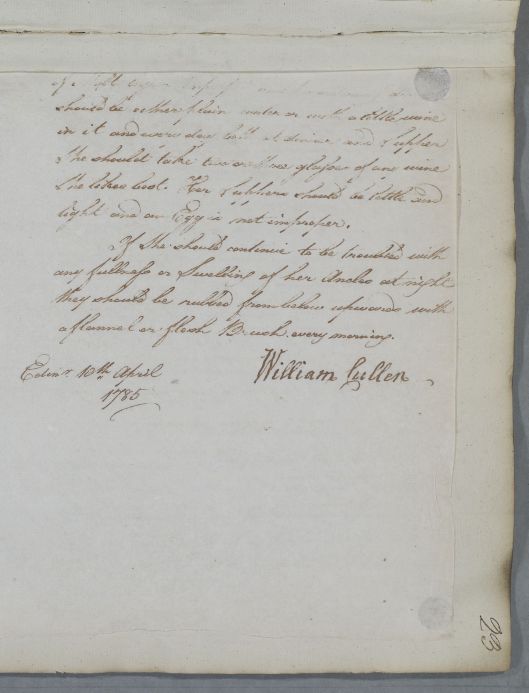 should be either plain water or with a little wine
in it and every day both at dinner and Supper
She should take two or three glasses of any wine
She likes best. Her Suppers should be little and
light and an Egg is not improper.
If She should continue to be troubled with
any fullness or Swelling of her Ancles at night
they should be rubbed from below upwards with
a flannel or flesh Brush every morning.
Edinr. 10th April
1785
William Cullen
23